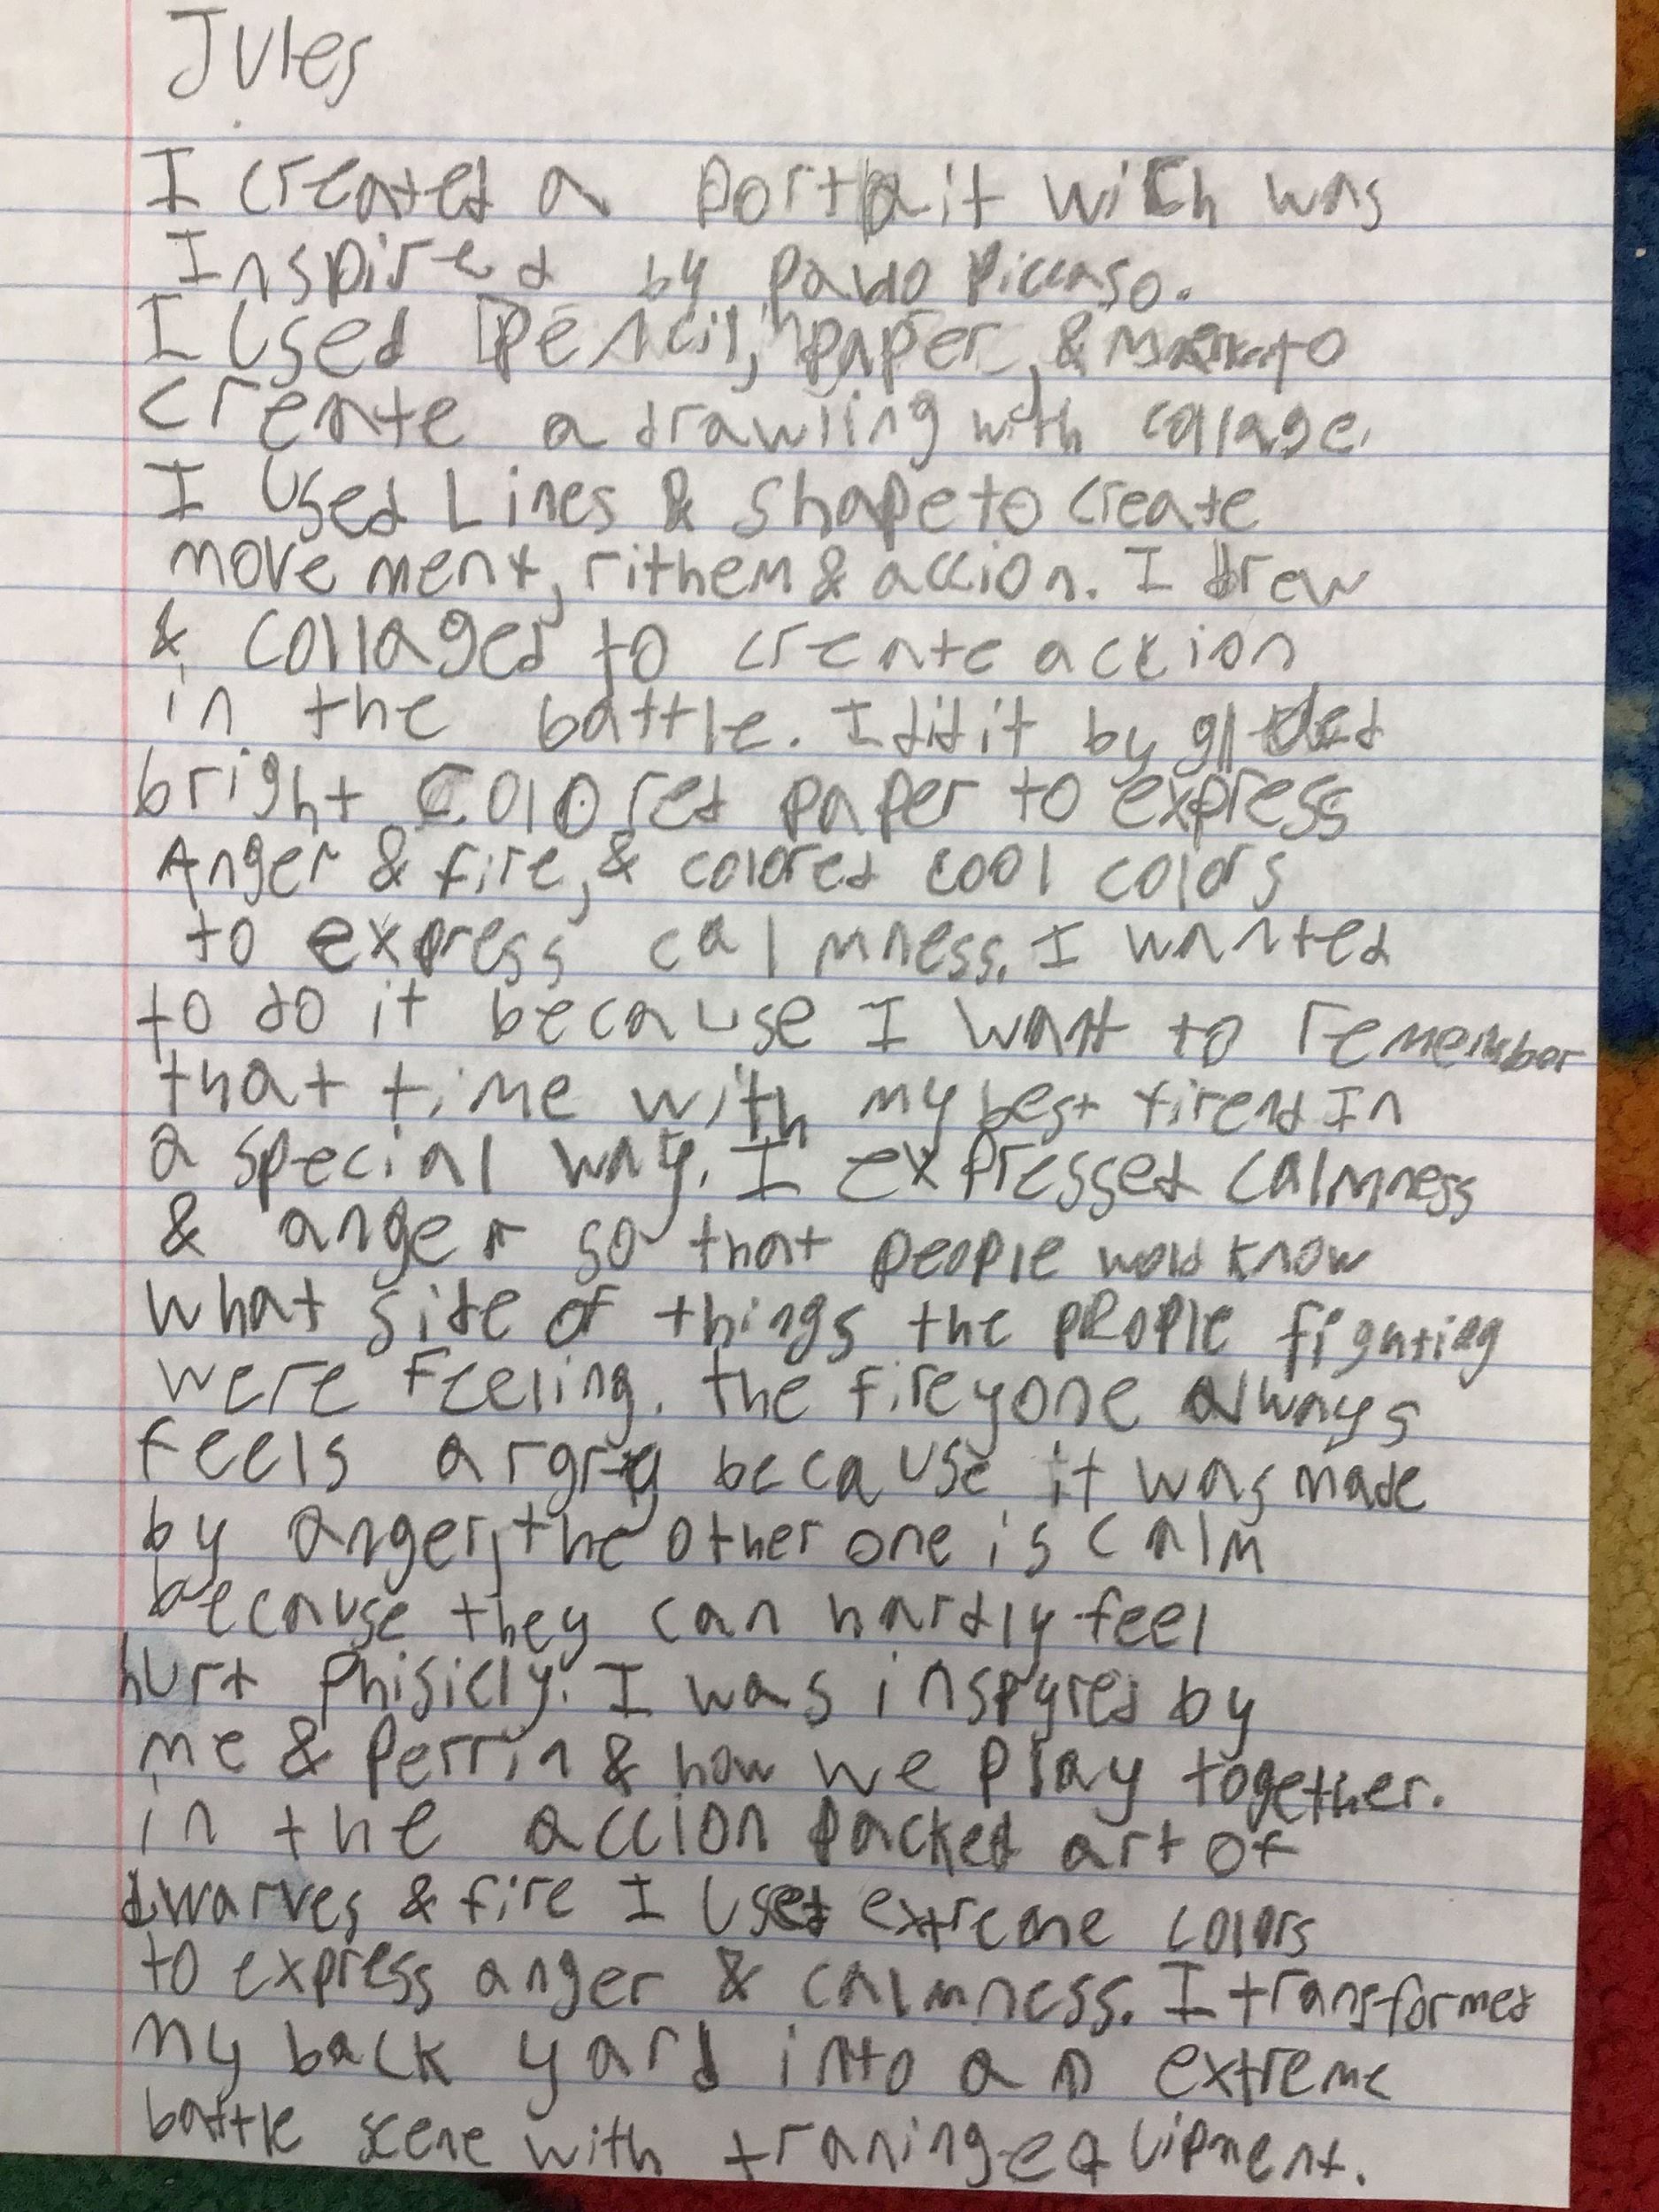 Jules
I created a portait wich was
Inspired by Pablo Piccaso.
I used Pencil, paper, & to
create a drawling with collage.
I used Lines & shape to create
move ment, rithem & accion. I drew
& collaged to create accion
in the battle. I did it by
bright colored paper to express
Anger & fire, & colored cool colors
to express calmness. I wanted
to do it because I want to remember
that time with my best firend In
a special way. I expressed calmness
& anger so that people wold know
what side of things the people fighting
were feeling. the firey one always
feels argry because it was made
by anger, the other one is calm
because they can hardly feel
hurt Phisicly. I was inspyred by
me & Perrin & how we play together.
in the accion packed art of
dwarves & fire I used extreme colors
to express anger & calmness. I transformed
my back yard into an extreme
battle scene with traning eqUipment.